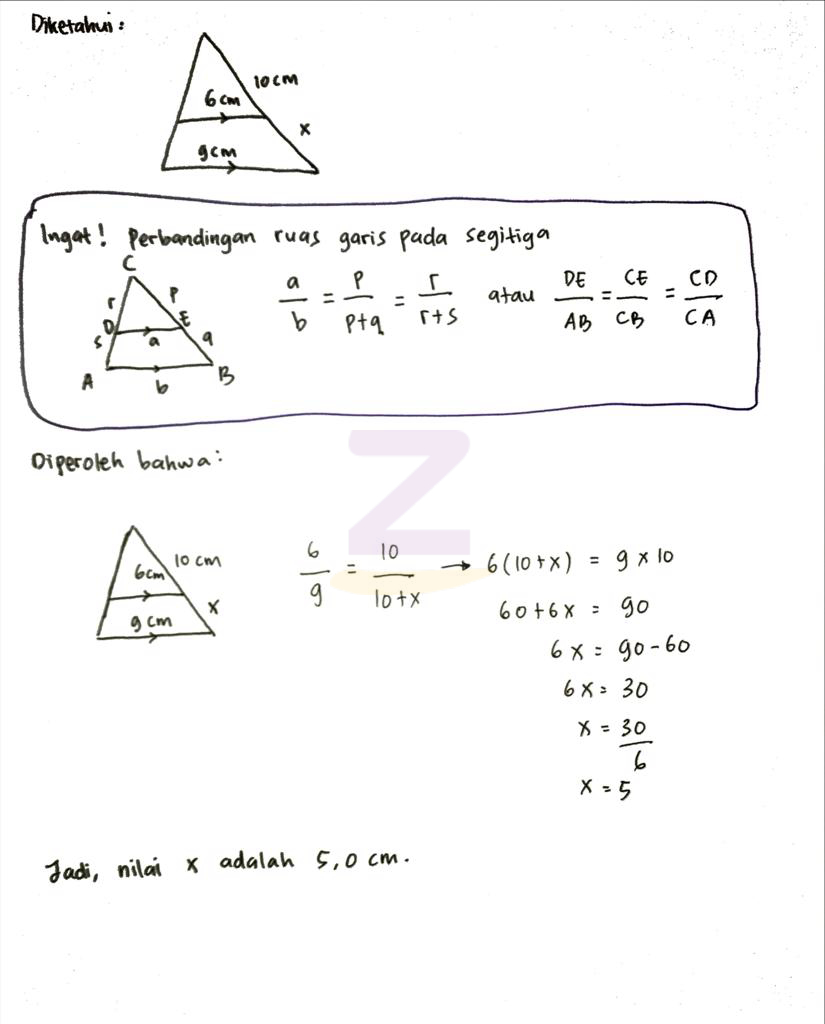 Diketahui:
10 cm
6 cm
x
9cm
Ingat! Perbandingan ruas garis pada segitiga
C
r p
D E
s a q
A b B
a/b = p/p+q = r/r+s atau DE/AB = CE/CB = CD/CA
Diperoleh bahwa:
10 cm
6cm
x
9 cm
6/9 = 10/10+x → 6(10+x) = 9 x 10
60+6x = 90
6x = 90-60
6x = 30
x = 30/6
x = 5
Jadi, nilai x adalah 5,0 cm.
Z